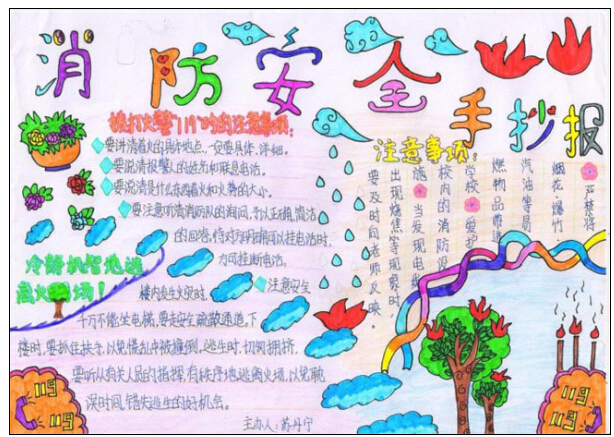 消防安全手抄报
拨打火警"119"时的注意事项:
要讲清着火的具体地点,一定要具体、详细。
要说清报警人的姓名和联系电话。
要说清是什么东西着火和火势的大小。
要注意听清消防队的询问,予以正确,简洁
的回答,待对方明确可以挂电话时,
方可挂断电话。
冷静机智地逃
离火场!
注意安全
楼内发生火灾时,
千万不能坐电梯,要走安全疏散通道。下
楼时,要抓住扶手,以免慌乱中被撞倒。逃生时,切勿拥挤,
要听从有关人员的指挥,有秩序地逃离火场,以免耽
误时间,错失逃生的好机会。
主办人:苏丹宁
注意事项:
严禁将
烟花、爆竹
汽油等易
燃物品带进
学校
爱护
校内的消防设
施
当发现电
出现烧焦等现象时,
要及时向老师反映。
119
119
119
119